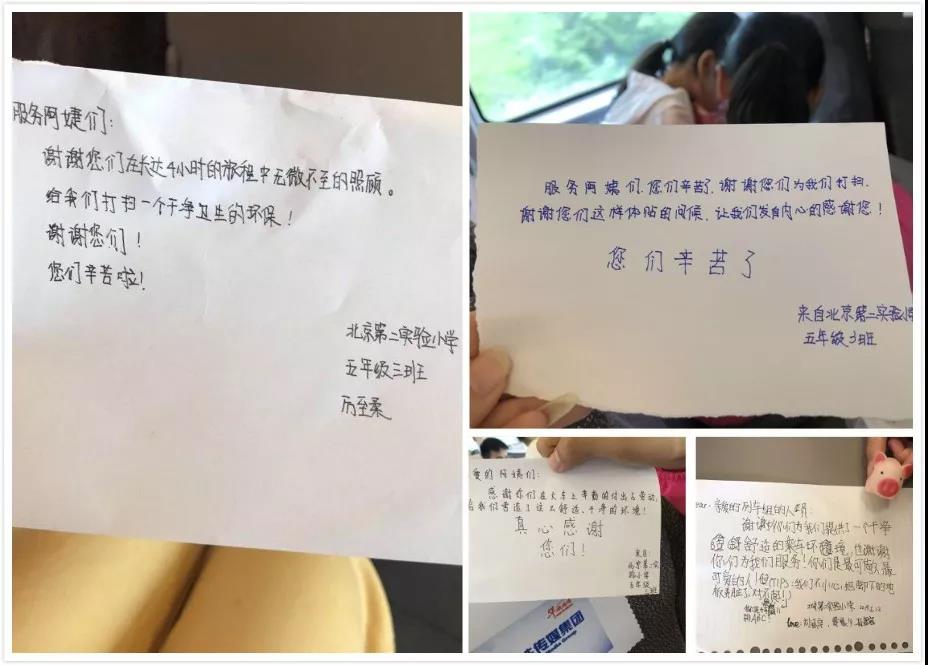 服务阿婕们:
谢谢您们在长达4小时的旅程中无微不至的照顾。
给我们打扫一个干净卫生的环保!
谢谢您们!
您们辛苦啦!
北京第二实验小学
五年级三班
历至柔
服务阿姨们,您们辛苦了,谢谢您们为我们打扫,
谢谢您们这样体贴的问候,让我们发自内心的感谢您!
您们辛苦了
来自北京第二实验小
五年级3班
爱的阿姨们:
感谢你们在火车上辛勤的付出与劳动,
给我们营造了这么舒适、干净的环境!
真心感谢
您们!
来自:
北京第二实
验小学
五年级
三班
传媒集团
ear.亲爱的列车组的人员:
谢谢你们为我们提供了一个干净
舒适的乘车环境,也谢谢
你们为我们服务!你们是最可敬、最
可爱的人!(TIPS:我们不小心把脚下的地
板弄脏了,对不起!)